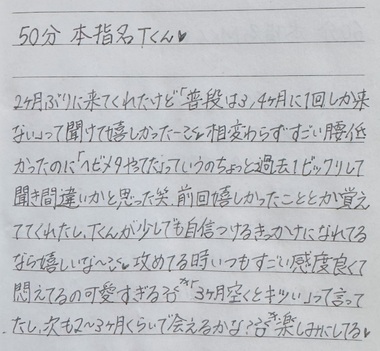 50分 本指名Tくん♥
2ヶ月ぶりに来てくれたけど「普段は3,4ヶ月に1回しか来
ない」って聞けて嬉しかった〜 相変わらずすごい腰低
かったのに「ヘビメタやってた」っていうのちょっと過去1ビックリして
聞き間違いかと思った笑 前回嬉しかったこととか覚え
ててくれたし、Tくんが少しでも自信つけるきっかけになれてる
なら嬉しいな〜 攻めてる時いつもすごい感度良くて
悶えてるの可愛すぎる 「3ヶ月空くとキツい」って言って
たし、次も2〜3ヶ月くらいで会えるかな? 楽しみにしてる♥